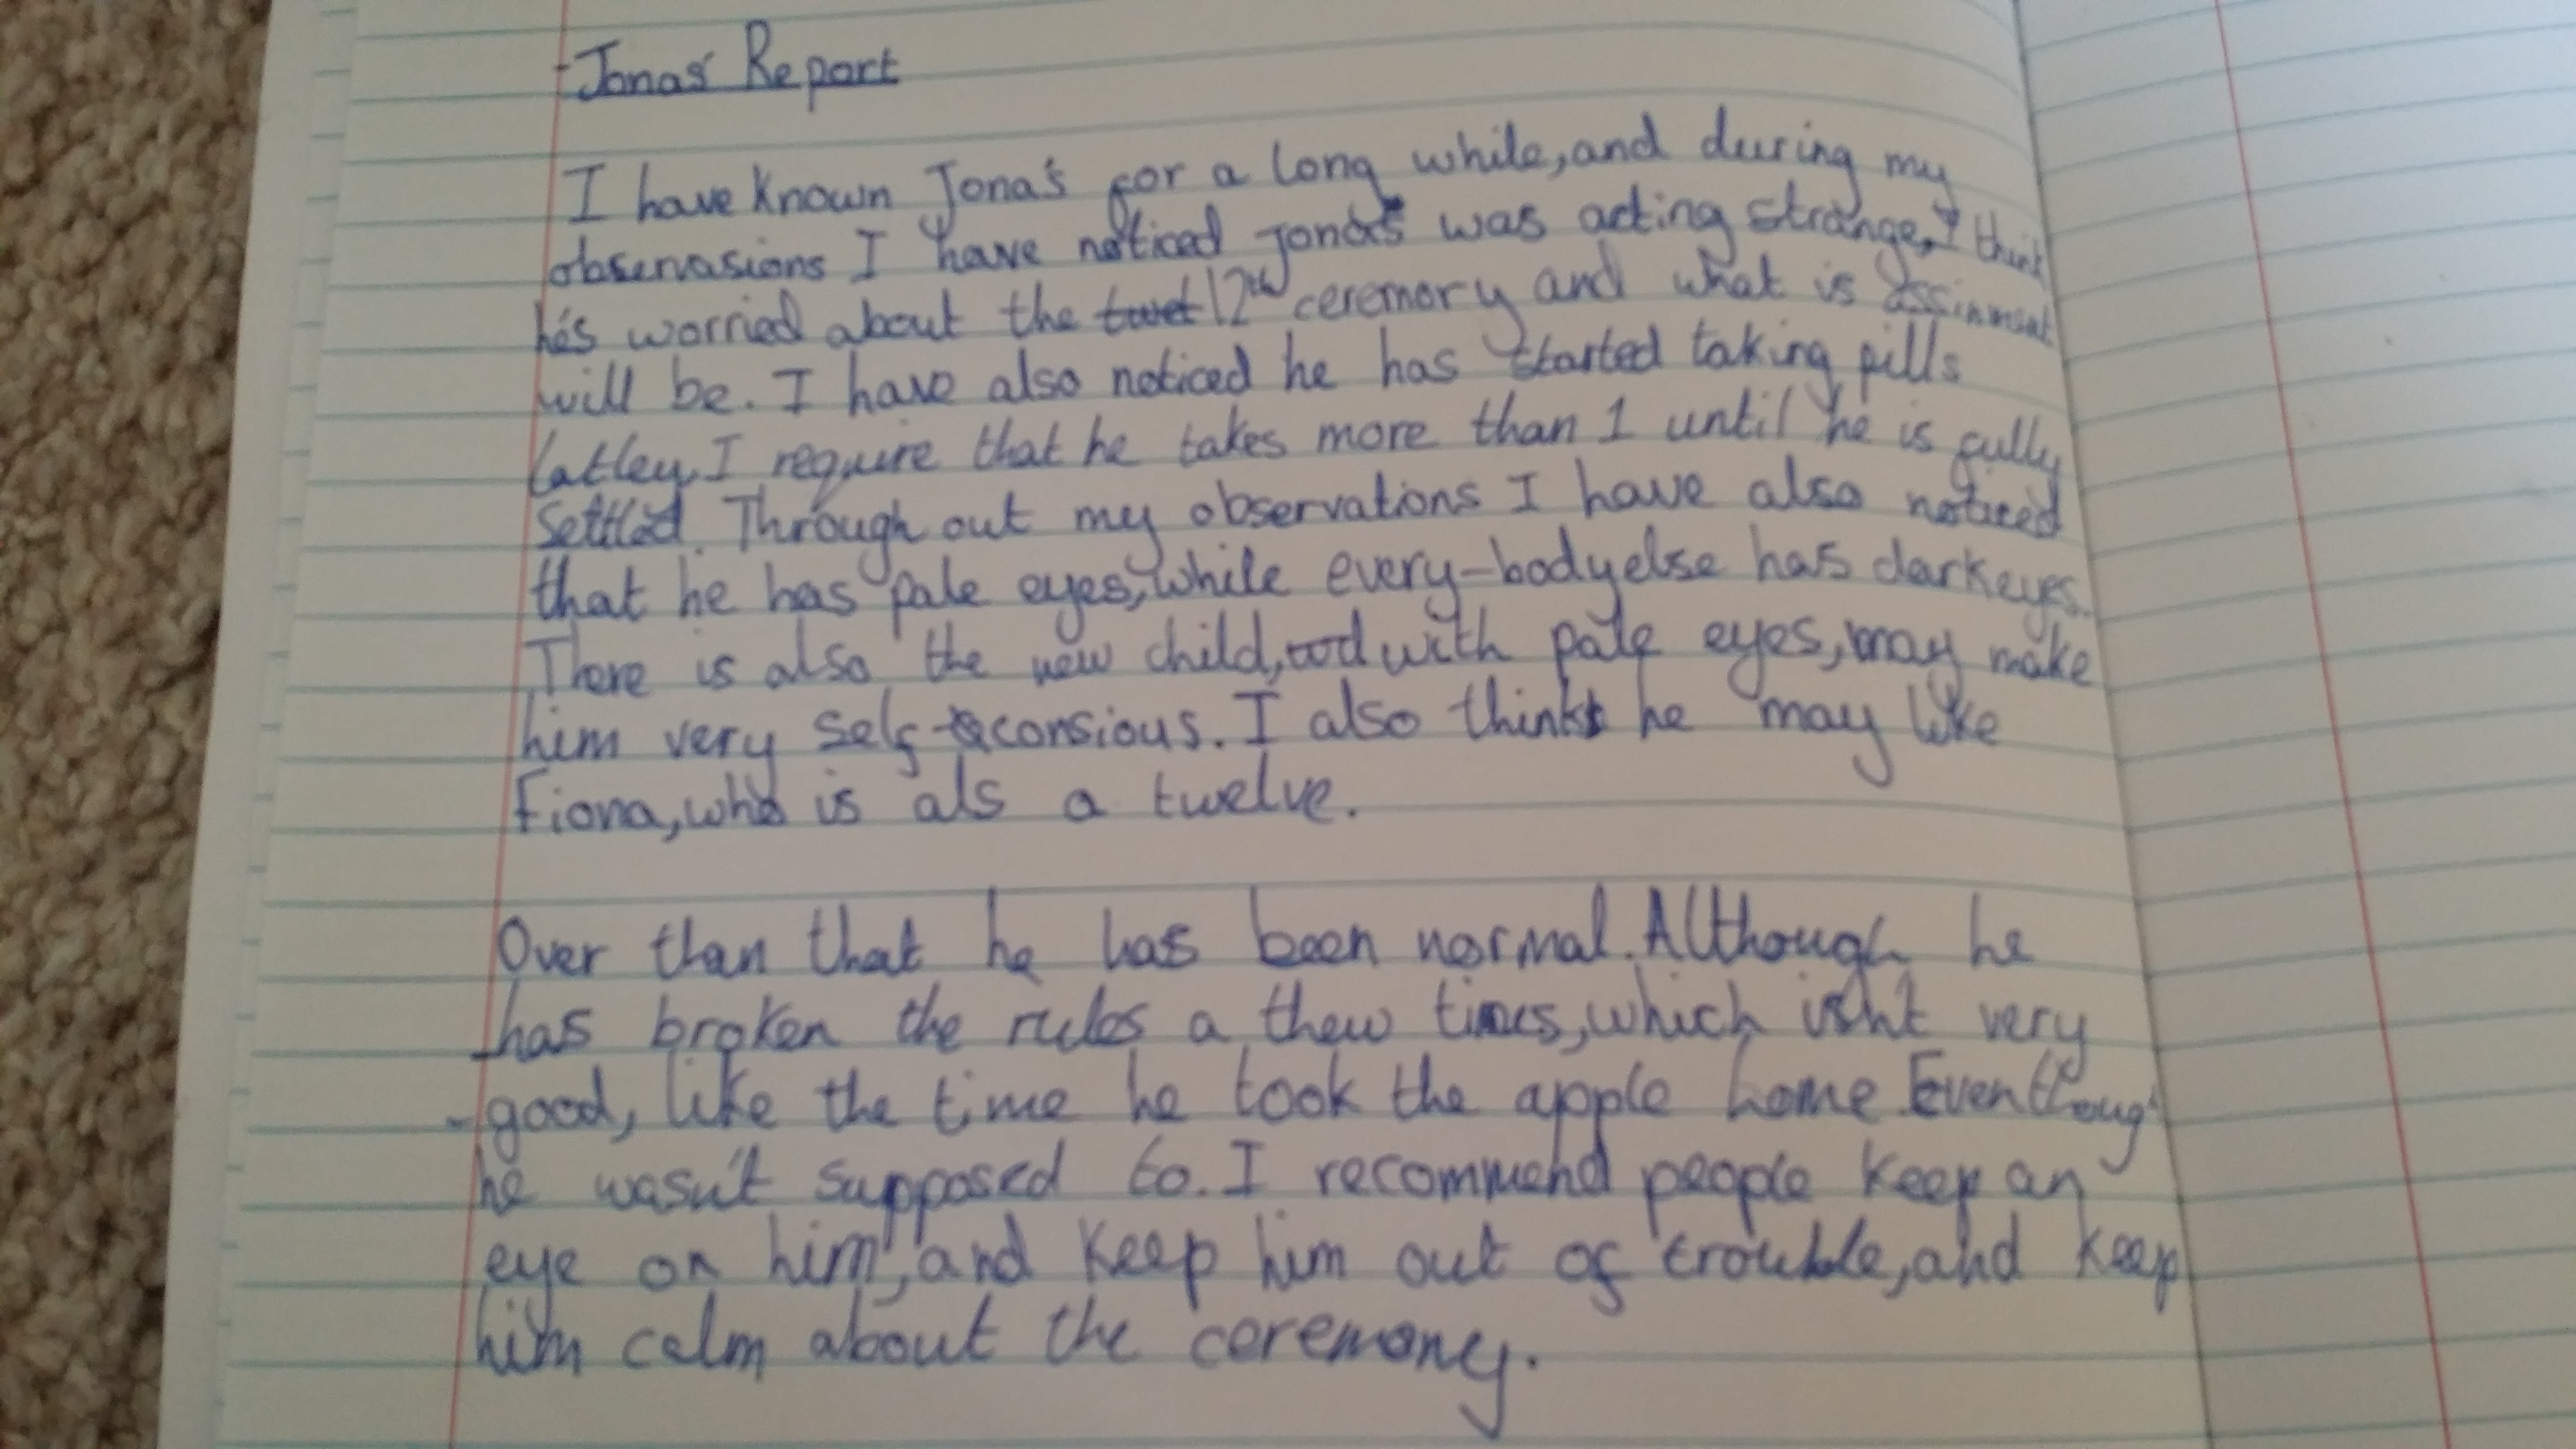 Jonas' Report
I have known Jona's for a long while, and during my
observasions I have noticed Jonas was acting strange, I think
he's worried about the twet 12th ceremory and what is assinment
will be. I have also noticed he has started taking pills
latley, I require that he takes more than 1 until he is fully
settled. Through out my observations I have also noticed
that he has pale eyes, while every-body else has dark eyes.
There is also the new child, with pale eyes, may make
him very self-consious. I also think he may like
Fiona, who is als a twelve.
Over than that he has been normal. Although he
has broken the rules a thew times, which isn't very
good, like the time he took the apple home. Eventhough
he wasn't supposed to. I recommend people keep an
eye on him, and keep him out of trouble, and keep
him calm about the ceremony.